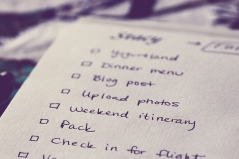 Dinner menu
Blog post
Upload photos
Weekend itinerary
Pack
Check in for flight